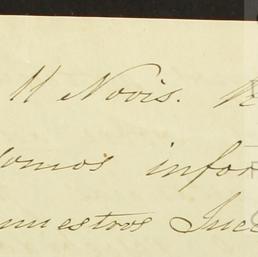 11 Novis.
omos infor
nuestros Suc